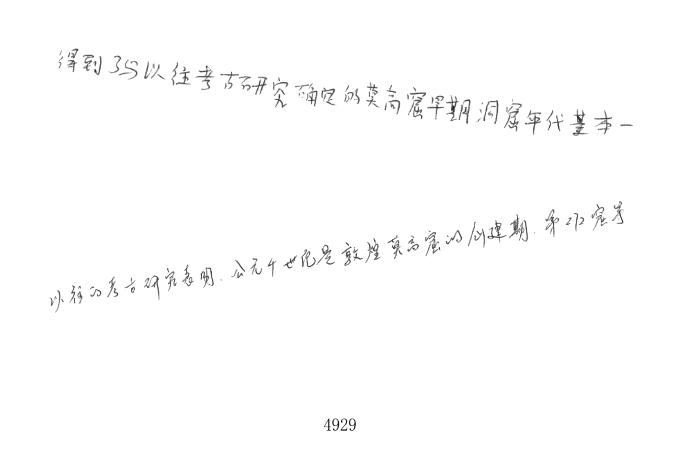 得到了与以往考古研究确定的莫高窟早期洞窟年代基本一
以往的考古研究表明，公元4世纪是敦煌莫高窟的创建期，第272窟等
4929